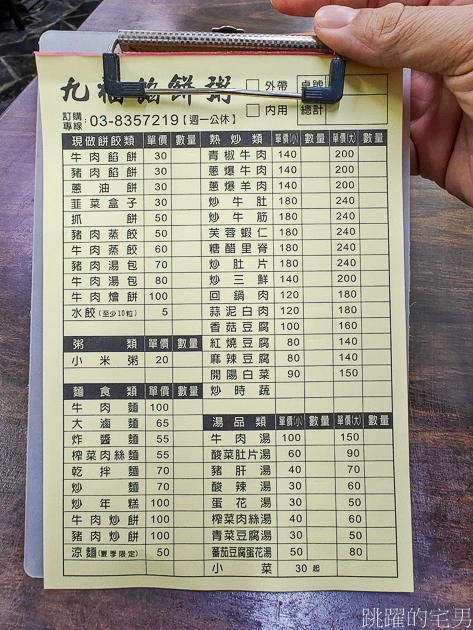 九福餡餅粥
外帶 桌號
內用 總計
訂購專線: 03-8357219【週一公休】
現做餅餃類 單價 數量
牛肉餡餅 30
豬肉餡餅 30
蔥油餅 30
韮菜盒子 30
抓餅 50
豬肉蒸餃 50
牛肉蒸餃 60
豬肉湯包 70
牛肉湯包 80
牛肉燴餅 100
水餃(至少10粒) 5
粥類 單價 數量
小米粥 20
麵食類 單價 數量
牛肉麵 100
大滷麵 65
炸醬麵 55
榨菜肉絲麵 55
乾拌麵 70
炒麵 70
炒年糕 100
牛肉炒餅 100
豬肉炒餅 100
涼麵(夏季限定) 50
熱炒類 單價(小) 數量 單價(大) 數量
青椒牛肉 140 200
蔥爆牛肉 140 200
蔥爆羊肉 140 200
炒牛肚 180 240
炒牛筋 180 240
芙蓉蝦仁 180 240
糖醋里脊 180 240
炒肚片 180 240
炒三鮮 140 200
回鍋肉 120 180
蒜泥白肉 120 180
香菇豆腐 100 160
紅燒豆腐 80 140
麻辣豆腐 80 140
開陽白菜 90 150
炒時蔬
湯品類 單價(小) 數量 單價(大) 數量
牛肉湯 100 150
酸菜肚片湯 60 90
豬肝湯 40 70
酸辣湯 30 60
蛋花湯 30 50
榨菜肉絲湯 40 60
青菜豆腐湯 30 50
蕃茄豆腐蛋花湯 50 80
小菜 30起
跳躍的宅男